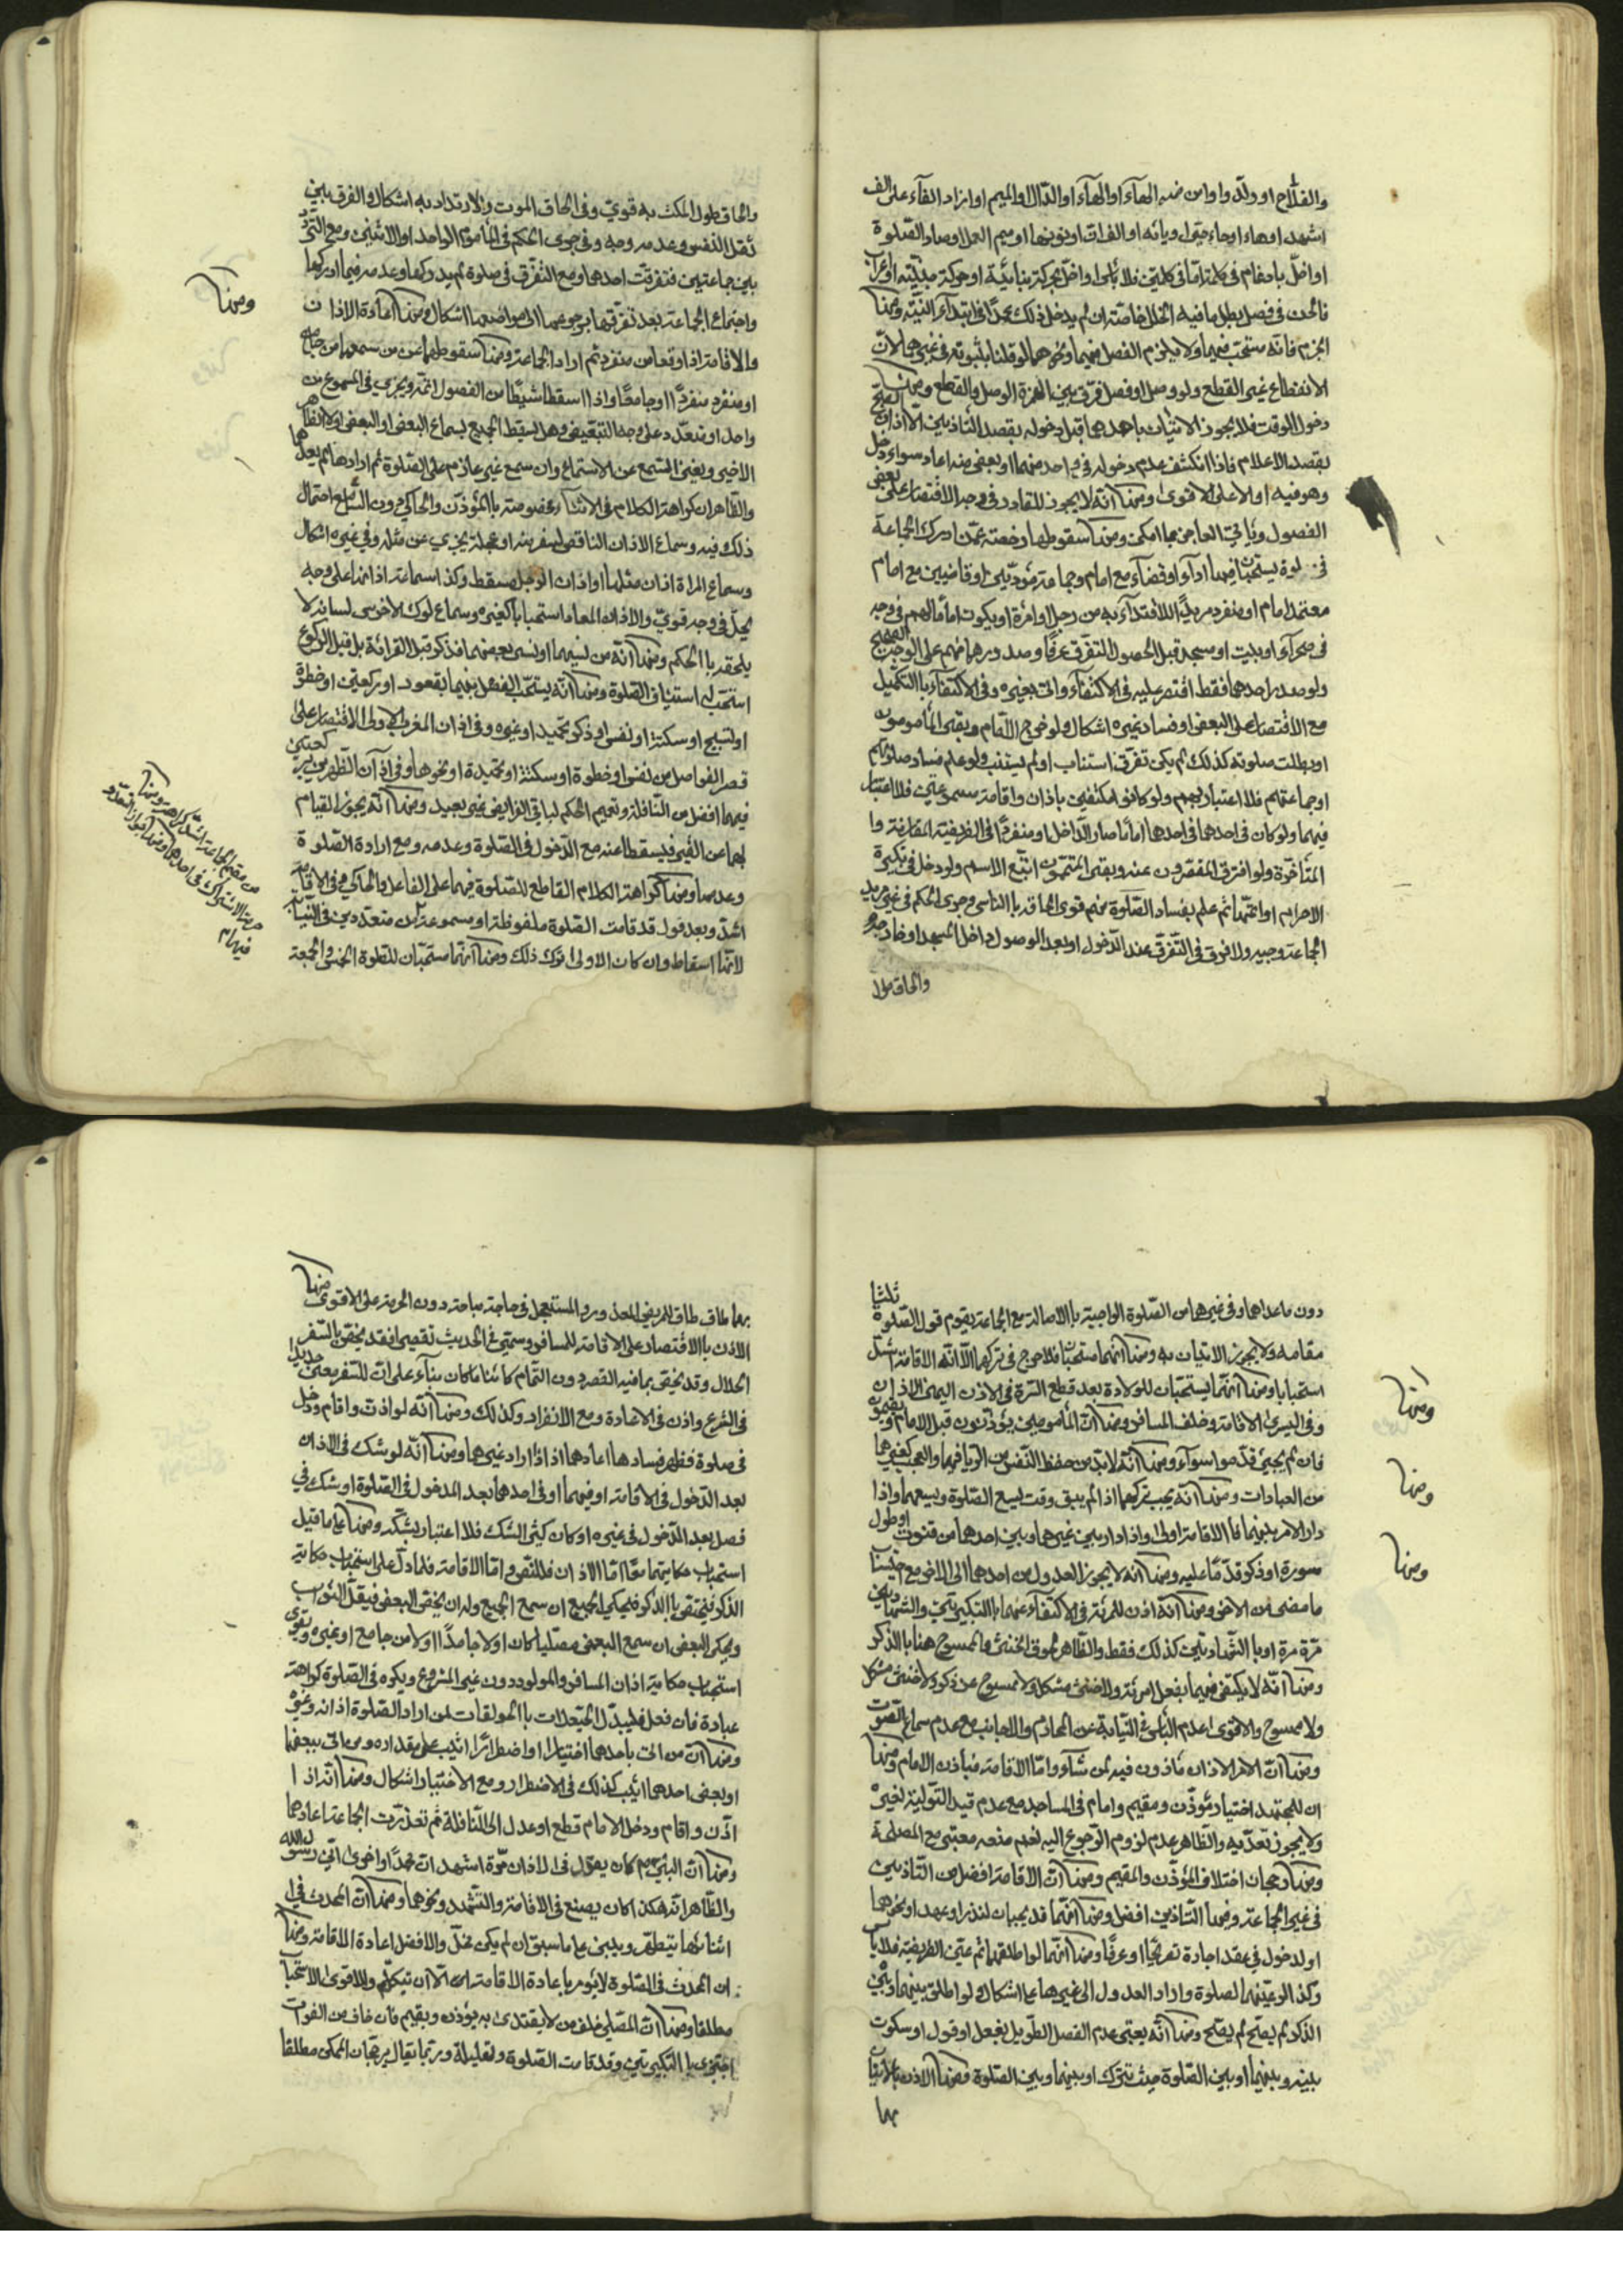 والفلاح او ولدّ واو من ضم الهآء او الهآء او الدّال او الميم او ازاد الفآء على الف
اشهد او هاء او حاء حيّ او يائه او الف ان او نونها او ميم العمل او صاد الصّلوة
او اخلّ بادغام في كلمة امّا في كلمتين فلا باس او اخلّ بحركة بنائيّة او حركة مبنيّة او اعراب
فالحن في فصل بطل ما فيه الخلل خاصّة ان لم يدخل ذلك عمدًا في ابتدآء النيّة ومنها
الجزم فانّه مستحبّ فيهما ولا يلزم الفصل فيهما ونحوهما لو قلنا بثبوته في غيرهما لانّ
الانقطاع غير القطع ولو وصل او فصل فرّق بين الهمزة الوصل والقطع ومنها
دخول الوقت فلا يجوز الاتيان باحدهما قبل دخوله بقصد التاذين الا اذان الصبح
بقصد الاعلام فاذا انكشف عدم دخوله في واحد منهما او بعض منه اعاد سواء دخل
وهو فيه او لا على الاقوى ومنها انّه لا يجوز للقادر في وجه الاقتصار على بعض
الفصول وياتي العاجز بما امكن ومنها سقوطها رخصة عمّن ادرك الجماعة
في صلوة يستحبان فيها ادآء او قضآء مع امام وجماعة مؤدّيين او قاضيين مع امام
معتمد امام او منفرد مريدًا للاقتدآء به من رجل او امرأة او يكون امامًا لهم في وجه
في صحرآء او بيت او مسجد قبل حصول التفرّق عرفًا وصدورهما منهم على الوجه الصحيح
ولو صدر احدهما فقط اقتصر عليه في الاكتفآء واتى بغيره وفي الاكتفآء بالتكميل
مع الاقتصار على البعض او فساد غيره اشكال ولو خرج الامام وبقى المأمومون
او بطلت صلوته كذلك لم يكن تفرّق استناب او لم يستنب ولو علم فساد صلوتهم
او جماعتهم فلا اعتبار بهم ولو كانوا مكتفين باذان واقامة مسموعتين فلا اعتبار
فيهما ولو كان في احدهما في احدهما امّا ما صار الدّاخل او منفردًا في الفريضة المقارنة وا
المتأخّرة ولو افترق المقصّرون عنه وبقى المتمّون اتّبع الاسم ولو دخل في تكبيرة
الاحرام او اتمّها ثم علم بفساد الصّلوة منهم قوى الحاقه بالناسي وجرى الحكم في غير مريد
الجماعة وجيه ولا فرق في التّفرّق عند الدّخول او بعد الوصول داخل المسجد او خارجه
والحاق طول
والحاق طول المكث به قويّ وفي الحاق الموت والارتداد به اشكال والفرق بين
ثقل النفس وعدمه وجه وفي جرى الحكم في المأموم الواحد او الاثنين ومع التردّد
بين جماعتين فتفرقت احدهما ومع التفرّق في صلوة لم يدركها وعدمه فيما ادركها
واجتماع الجماعة بعد تفرّقها برجوعهما الى مواضعهما اشكال ومنها اعادة الاذان
والاقامة اذا وقعا من منفرد ثم اراد الجماعة ومنها سقوطهما عن من سمعهما من جامع
او منفرد منفردًا او جامعًا واذا اسقطا شيئًا من الفصول اتمّه ويجزي في المسموع من
واحد او متعدّد على وجه التبعيض وهل يسقط الجميع بسماع البعض او البعض اولا الظاهر
الاخير ويغني السّمع عن الاستماع وان سمع غير عازم على الصّلوة ثم ارادها لم يعدهما
والظاهر ان كراهة الكلام في الاثناء مخصوصة بالمؤذّن والحاكي دون السّامع احتمال
ذلك فيه وسماع الاذان الناقص لسفر منه او عجلة يجزي عن مثله وفي غيره اشكال
وسماع المرأة اذان مثلها او اذان الرجل مسقط وكذا سماعه اذانها على وجه
يحلّ في وجه قويّ والاذان المعاد استحبابًا كغيره وسماع لوك الاخرس لسانه لا
يلحقه بالحكم ومنها انّه من نسيهما او نسى بعضهما فذكر قبل القرائة بل قبل الركوع
استحبّ له استيناف الصّلوة ومنها انّه يستحبّ الفصل بينهما بقعود او ركعتين او خطوة
او تسبيح او سكتة او نفس او ذكر تحميد او غيره وفي اذان المغرب الاولى الاقتصار على
قصر الفواصل من نفس او خطوة او سكتة او تحميدة او نحوها وفي اذان الظّهرين ركعتين
فيهما افضل من النّافلة وتعميم الحكم لباقي الفرايض غير بعيد ومنها انّه يجوز القيام
بهما عن الغير فيسقطا عنه مع الدّخول في الصّلوة وعدمه ومع ارادة الصّلوة
وعدمها ومنها كراهة الكلام القاطع للصّلوة فيهما على الفاعل والحاكي وفي الاقامة
اشدّ وبعد قول قد قامت الصّلوة ملفوظة او مسموعة من متعدّدين في النيابة
لانّها اسقاط وان كان الاولى ترك ذلك ومنها انّهما مستحبّان للصّلوة الخمس والجمعة
ومنها
من مقيم الجماعة اشدّ كراهة ومنها
حرمة الاشتراك في احدهما ومنها جواز التعدّد
فيهما
دون ما عداها وفي غيرهما من الصّلوة الواجبة بالاصالة مع الجماعة يقوم قول الصّلوة ثلثا
مقامه ولا يجوز الاتيان به ومنها انّهما مستحبّان فلا حرج في تركهما الّا انّه الاقامة اشدّ
استحبابا ومنها انّهما يستحبّان للولادة بعد قطع السّرة في الاذن اليمنى الاذان
وفي اليسرى الاقامة وخلف المسافر ومنها انّ المأمومين يؤذّنون قبل الامام ويقيمون
فان لم يجئ قدّموا سوآء ومنها انّه لابدّ من حفظ النّفس من الرّيا فيهما والعجب كغيرهما
من العبادات ومنها انّه يجب تركهما اذا لم يبق وقت يسع الصّلوة ويسعهما واذا
دار الامر بينهما فالاقامة اولى واذا دار بين غيرهما وبين احدهما من قنوت او طول
سورة او ذكر قدّما عليه ومنها انّه لا يجوز العدول من احدهما الى الاخر مع احتساب
ما مضى من الاخر ومنها انّه اذن للمرئة في الاكتفآء عنهما بالتكبيرتين والشهادتين
مرّة مرة او بالشّهادتين كذلك فقط والظّاهر لحوق الخنثى والممسوح هنا بالذّكر
ومنها انّه لا يكتفى فيهما بفعل امرئة ولا خنثى مشكل ولا ممسوح عن ذكر ولا خنثى مشكل
ولا ممسوح والاقوى عدم البأس في النّيابة عن المحارم والاجانب مع عدم سماع الصّوت
ومنها انّ الامر الاذان مأذون فيه لمن شآء وامّا الاقامة فبأذن الامام ومنها
ان للمجتهد اختيار مؤذّن ومقيم وامام في المساجد مع عدم قيد التّولية لغيره
ولا يجوز تعدّيه والظّاهر عدم لزوم الرّجوع اليه نعم منعه معتبر مع المصلحة
ومنها رجحان اختلاف المؤذّن والمقيم ومنها انّ الاقامة افضل من التّاذين
في غير الجماعة وفيها التّاذين افضل ومنها انّهما قد يجبان لنذر او عهد او نحوهما
او لدخول في عقد اجارة تصريحًا او عرفًا ومنها انّهما لو اطلقهما ثم عيّن الفريضة فلا باس
وكذا لو عيّنهما لصلوة واراد العدول الى غيرها على اشكال ولو اطلق بينهما وبين
الذّكر لم يصحّ لم يصحّ ومنها انّه يعتبر عدم الفصل الطّويل بفعل او قول او سكوت
بينه وبينها او بين الصّلوة حيث تترك او بينهما وبين الصّلوة ومنها الاذن بالاتيان
بهما
ومنها
ومنها
ومنها
بهما طاق طاق للمريض المعذور والمستعجل في حاجة مباحة دون الحرمة على الاقوى ومنها
الاذن بالاقتصار على الاقامة للمسافر وسمّى في الحديث تقصيرًا فقد يختصّ بالسّفر
الحلال وقد يختصّ بما فيه القصر دون التّمام كائنا ما كان بنآء على انّ للسّفر معنى جديدا
في الشرع واذن في الاعادة ومع الانفراد وكذلك ومنها انّه لو اذن واقام ودخل
في صلوة فظهر فسادها اعادهما اذا اراد غيرهما ومنها انّه لو شكّ في الاذان
بعد الدّخول في الاقامة او فيهما او في احدهما بعد الدخول في الصّلوة او شكّ في
فصل بعد الدّخول في غيره او كان كثير الشكّ فلا اعتبار بشكّه ومنها على ما قيل
استحباب حكايتهما معًا امّا الاذان فللنصّ وامّا الاقامة فلما دلّ على استحباب حكاية
الذّكر فيختصّ بالذّكر فيحكي الجميع ان سمع الجميع وله ان يخصّ البعض فيقلّ الثواب
ويحكي البعض ان سمع البعض مصلّيا كان او لا جامدًا او لا من جامع او غيره ويقوى
استحباب حكاية اذان المسافر والمولود دون غير المشروع ويكره في الصّلوة كراهة
عبادة فان فعل فليبدّل الحيّعلات بالحولقات لمن اراد الصّلوة اذانه وغيره
ومنها انّ من اتى باحدهما اختيارا او اضطرارًا اثيب على مقداره ومن اتى ببعضها
او بعض احدهما اثيب كذلك في الاضطرار ومع الاختيار اشكال ومنها انّه اذا
اذّن واقام ودخل الامام قطع او عدل الى النّافلة ثم تعذّرت الجماعة اعادهما
ومنها انّ النبيّ ص كان يقول في الاذان مرّة اشهد انّ محمّدًا واخرى انّي رسول الله
والظّاهر انّه هكذا كان يصنع في الاقامة والتّشهد ونحوهما ومنها انّ المحدث في
اثنائهما يتطهّر ويبني على ما سبق ان لم يكن مخلّ والافضل اعادة الاقامة ومنها
ان المحدث في الصّلوة لا يؤمر باعادة الاقامة الّا ان تيكلّم والاقوى الاستحباب
مطلقا ومنها انّ المصلّي خلف من لا يقتدى به يؤذن ويقيم فان خاف من الفوات
اجتزى بالتكبيرتين وقد قامت الصّلوة وتهليلة وربّما يقال برجحان الممكن مطلقا